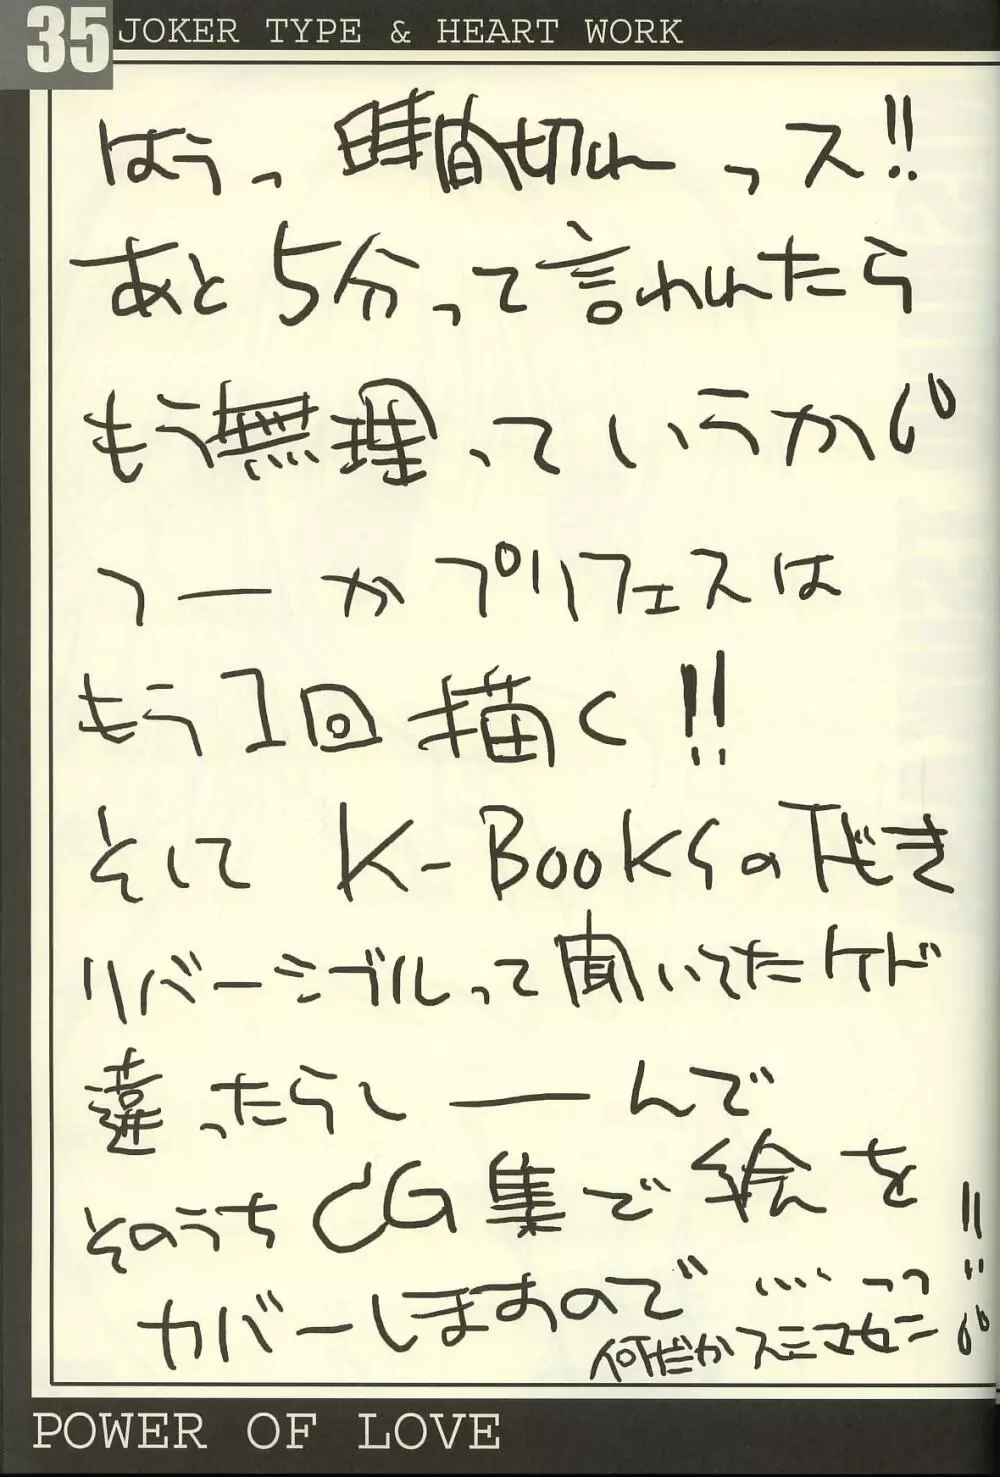 35 JOKER TYPE & HEART WORK
はうっ 時間切れっス!!
あと5分って言われたら
もう無理っていうか。
つーかプリフェスは
もう1回描く!!
そして K-BOOKSの下だき
リバーシブルって聞いてたケド
違ったらしーんで
そのうちCG集で絵を
カバーしますので……っっ!!
何だかスミマセン。
POWER OF LOVE